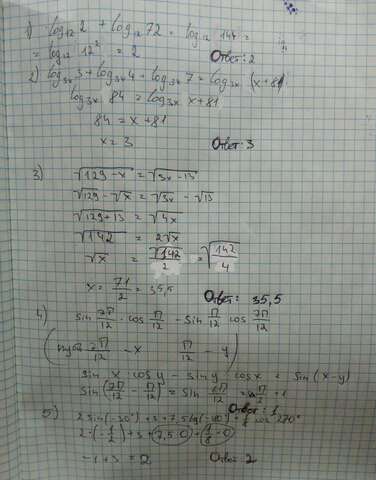 1) log₁₂ 2 + log₁₂ 72 = log₁₂ 144 =
= log₁₂ 12² = 2 Ответ: 2
2) log₃ₓ 3 + log₃ₓ 4 + log₃ₓ 7 = log₃ₓ (x+81)
log₃ₓ 84 = log₃ₓ x+81
84 = x+81
x = 3 Ответ: 3
3) √129-x = √3x-13
√129 - √x = √3x - √13
√129+13 = √4x
√142 = 2√x
√x = √142/2 = √142/4
x = 71/2 = 35,5 Ответ: 35,5
4) sin 7π/12 · cos π/12 - sin π/12 cos 7π/12
(пусть 7π/12 - x π/12 - y)
sin x cos y - sin y cos x = sin(x-y)
sin(7π/12 - π/12) = sin 6π/12 = π/2 = 1
Ответ: 1
5) 2 sin(-30°) + 3 + 7,5 tg(-180°) + 1/8 cos 270°
2·(-1/2) + 3 + 7,5·0 + 1/8·0
-1+3 = 2 Ответ: 2